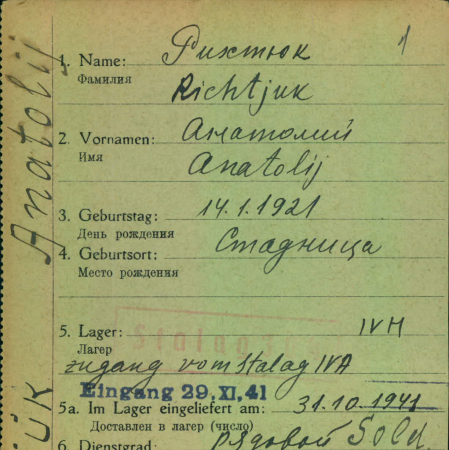 1
1. Name: Рихтюк
Фамилия
Richtjuk
2. Vornamen: Анатолий
Имя
Anatolij
3. Geburtstag: 14.1.1921
День рождения
4. Geburtsort: Стадница
Место рождения
5. Lager: Stalag IVH
Лагерь
Zugang vom Stalag IVA
Eingang 29. XI. 41
5a. Im Lager eingeliefert am: 31.10.1941
Доставлен в лагерь (число)
6. Dienstgrad: рядовой Sold.
Anatolij